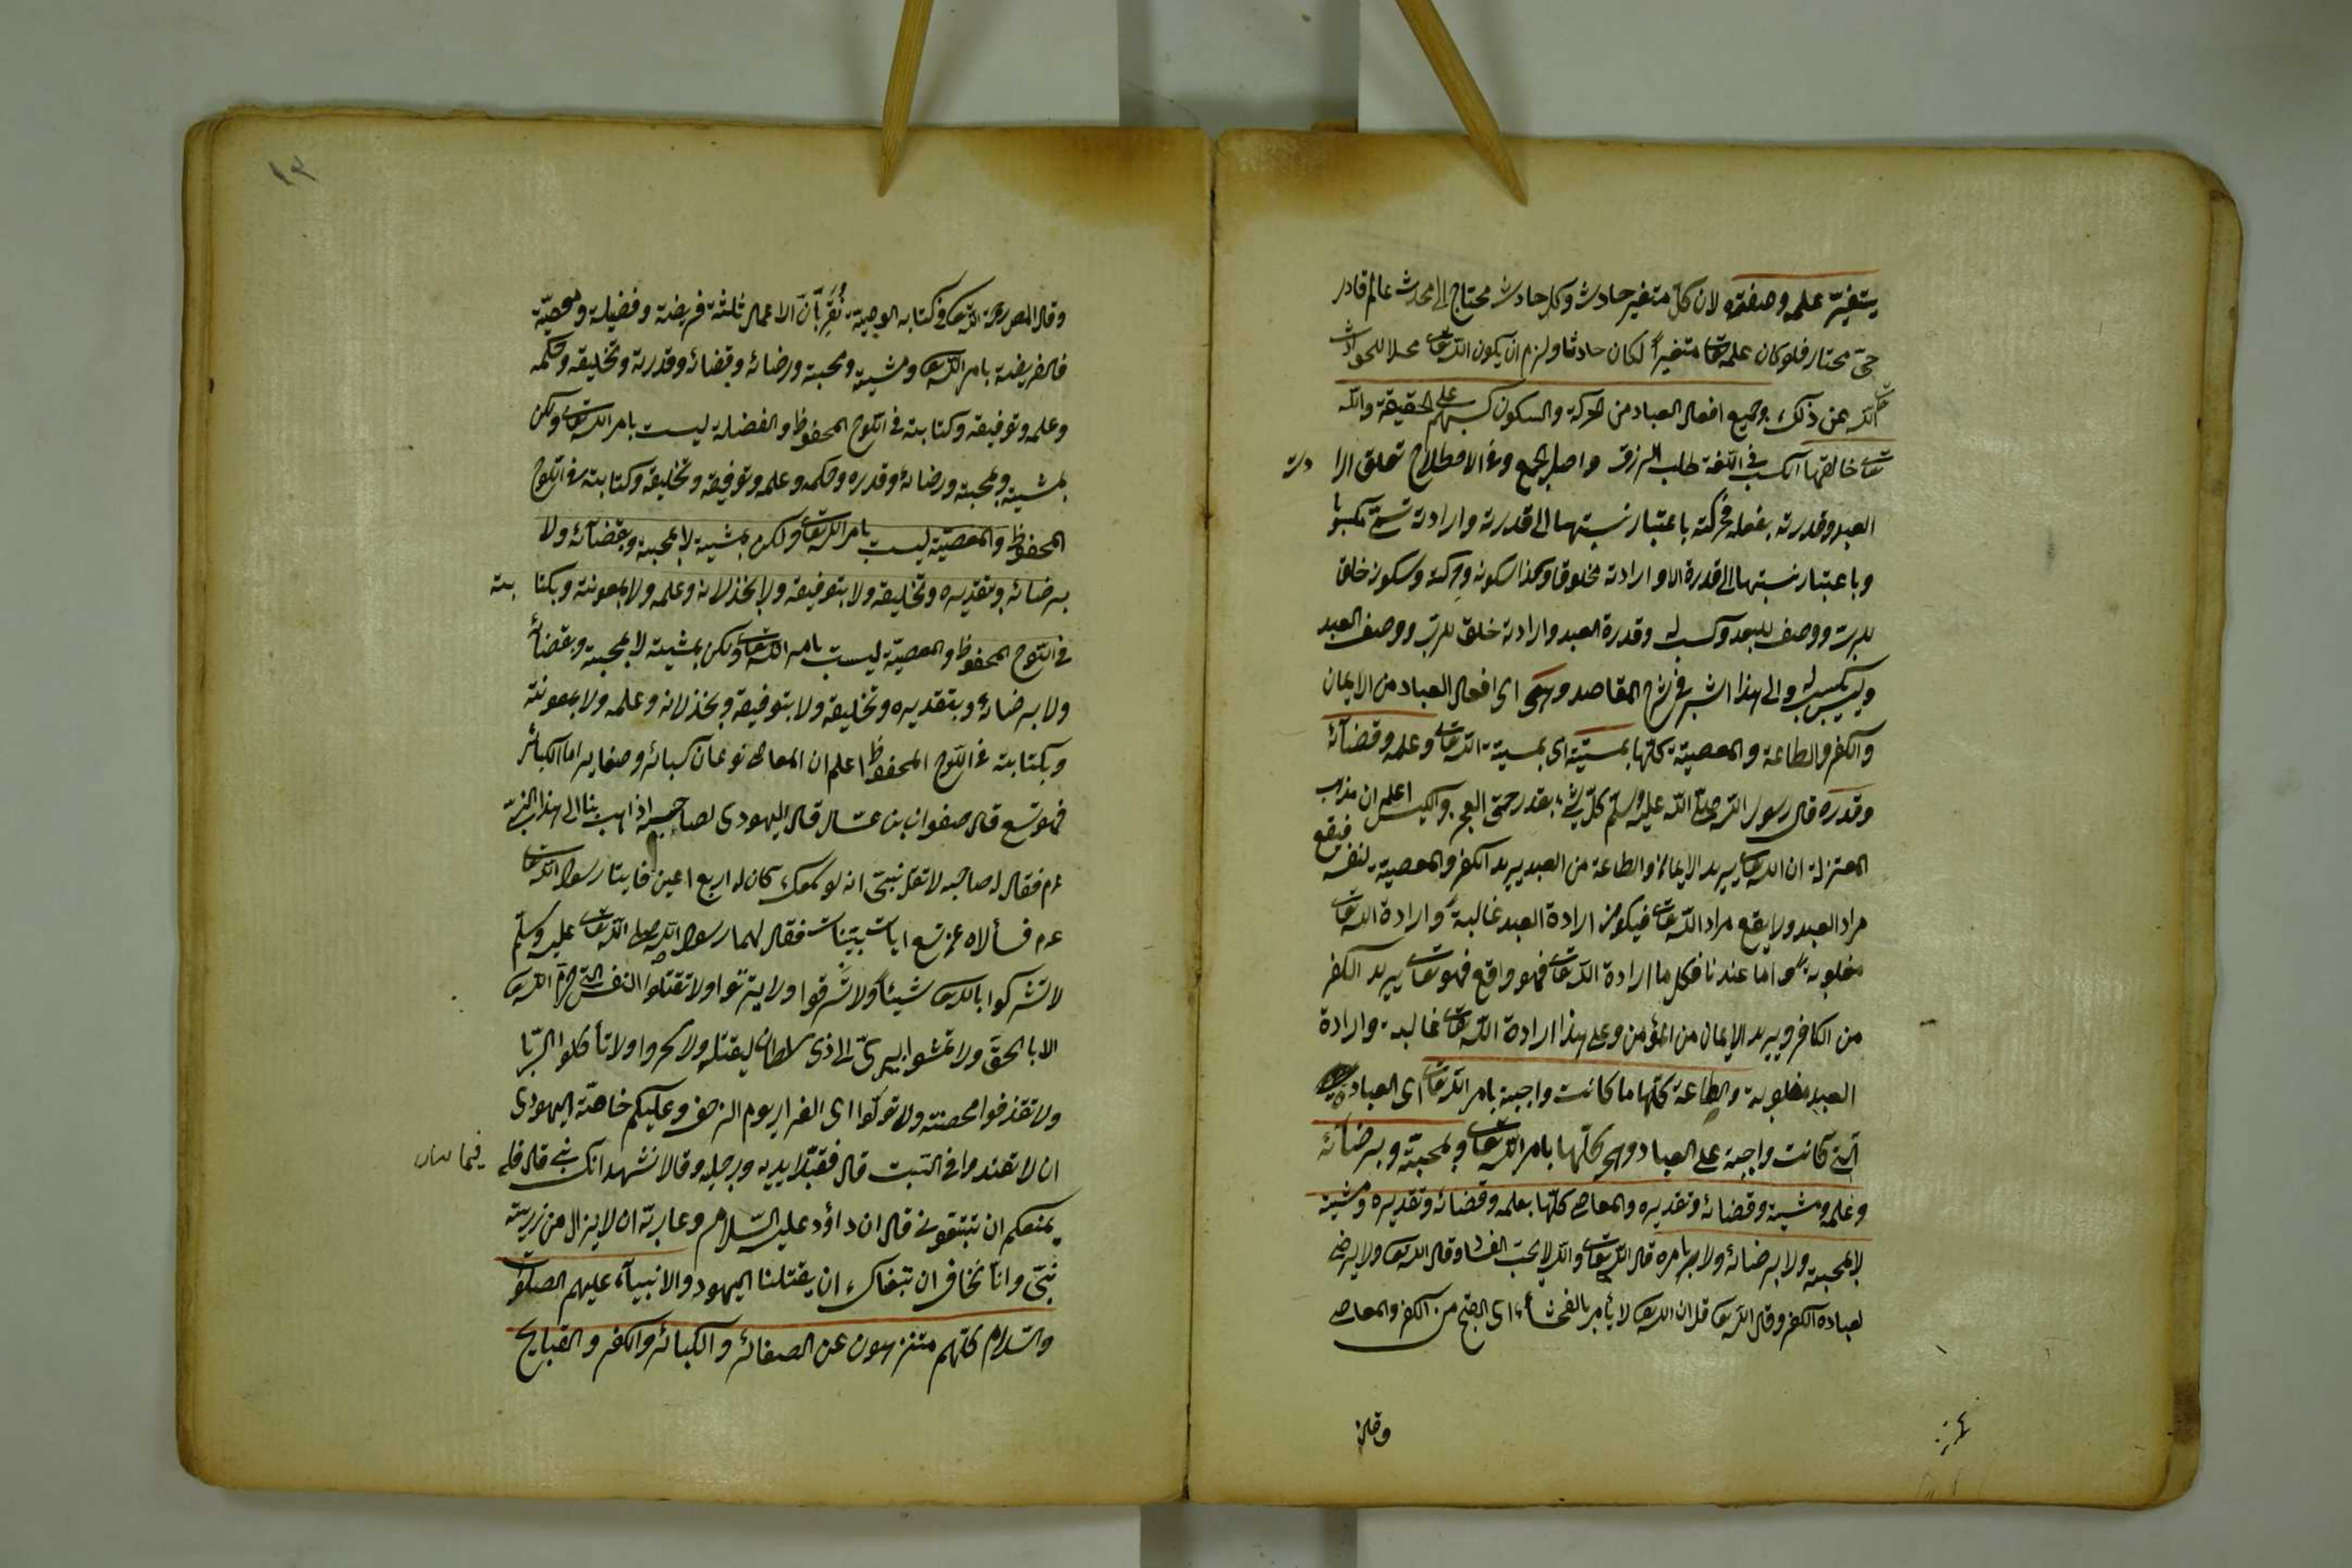 يتغيّر علمه وصفته لان كلّ متغير حادث وكل حادث محتاج الى محدث عالم قادر
حىّ مختار فلو كان علمه تعالى متغيراً لكان حادثا ولزم ان يكون الله تعالى محلا للحوادث
تعالى الله عن ذلك وجميع افعال العباد من الحركة والسكون كسبهم على الحقيقة والله
تعالى خالقها الكسب فى اللغة طلب الرزق واصله الجمع وفى الاصطلاح تعلق الرا دة
العبد وقدرته بفعله فحركته باعتبار نسبتها الى قدرته وارادته تسمّى مكسوبا
وباعتبار نسبتها الى قدرة الله وارادته مخلوقا وكذا سكونه وحركته وسكونه خلق
للرب ووصف للعبد وكسب له وقدرة العبد وارادته خلق للرب ووصف العبد
وليس بكسب له والى هذا اشير فى شرح المقاصد وهى اى افعال العباد من الايمان
والكفر والطاعة والمعصية كلها بمشيّته اى بمشيته الله تعالى وعلمه وقضائه
وقدره قال رسول الله صلى الله عليه وسلم كلّ شئ بقدر حتى العجز والكيس اعلم ان مذهب
المعتزلة ان الله تعالى يريد الايمان والطاعة من العبد يريد الكفر والمعصية لنفسه فيقع
مراد العبد ولا يقع مراد الله تعالى فيكون ارادة العبد غالبة وارادة الله تعالى
مغلوبة واما عندنا فكل ما ارادة الله تعالى فهو واقع فهو تعالى يريد الكفر
من الكافر ويريد الايمان من المؤمن وعلى هذا ارادة الله تعالى غالبة وارادة
العبد مغلوبة والطاعة كلّها ما كانت واجبة بامر الله تعالى اى العبادة
الّتى كانت واجبة على العباد وهى كلّها بامر الله تعالى وبمحبّته وبرضائه
وعلمه ومشيته وقضائه وتقديره والمعاصى كلّها بعلمه وقضائه وتقديره ومشيته
لا بمحبته ولا برضائه ولا بامره قال الله تعالى والله لا يحب الفساد وقال الله تعالى ولا يرضى
لعباده الكفر وقال الله تعالى قل ان الله تعالى لا يأمر بالفحشاء اى القبح من الكفر والمعاصى
وقال
١٢
وقال المص رحمة الله تعالى فى كتابه الوصية نُقِرّ بأن الاعمال ثلثة فريضة وفضيلة ومعصيّة
فالفريضة بامر الله تعالى ومشيته ومحبته ورضائه وقضائه وقدرته وتخليقه وحكمه
وعلمه وتوفيقه وكتابته فى اللّوح المحفوظ والفضلة ليست بامر الله تعالى ولكن
بمشيته وبمحبته ورضائه وقدره وحكمه وعلمه وتوفيقه وتخليقه وكتابته فى اللّوح
المحفوظ والمعصيّة ليست بامر الله تعالى ولكن بمشيته لا بمحبته وبقضائه ولا
برضائه وبتقديره وتخليقه ولا بتوفيقه ولا بخذلانه وعلمه ولا بمعونته وبكتا بته
فى اللّوح المحفوظ والمعصيّة ليست بامر الله تعالى ولكن بمشيته لا بمحبته وبقضائه
ولا برضائه وبتقديره وتخليقه ولا بتوفيقه وبخذلانه وعلمه ولا بمعونته
وبكتابته فى اللّوح المحفوظ اعلم ان المعاصى نوعان كبائر وصغاير اما الكبائر
فهو تسع قال صفوان بن عسال قال اليهودى لصاحبه اذهب بنا الى هذا النبىّ
عم فقال له صاحبه لا تقل نبىّ انه لو سمعك كان له اربع اعين فاتيا رسول الله تعالى
عم فسألاه عن تسع ايات بيّنات فقال لهما رسول الله صلى الله تعالى عليه وسلّم
لا تشركوا بالله تعالى شيئاً ولا تسرقوا ولا تزنوا ولا تقتلوا النفس التى حرّم الله تعالى
الا بالحق ولا تمشوا ببرئ الى ذى سلطان ليقتله ولا تسحروا ولا تأكلوا الرّبا
ولا تقذفوا محصنة ولا تولّوا اى الفرار يوم الزحف وعليكم خاصّة اليهودى
ان لا تعتدوا فى السبت قال فقبّلا يديه ورجليه وقالا نشهد انك نبى قال فلم
يمنعكم ان تتبعونى قال ان داؤد عليه السّلام دعا ربّه ان لا يزال من ذريته
نبىّ وانّا نخاف ان تبعناك ان يقتلنا اليهود والانبيآء عليهم الصلوة
والسّلام كلّهم منزهون عن الصغائر والكبائر والكفر والقبايح